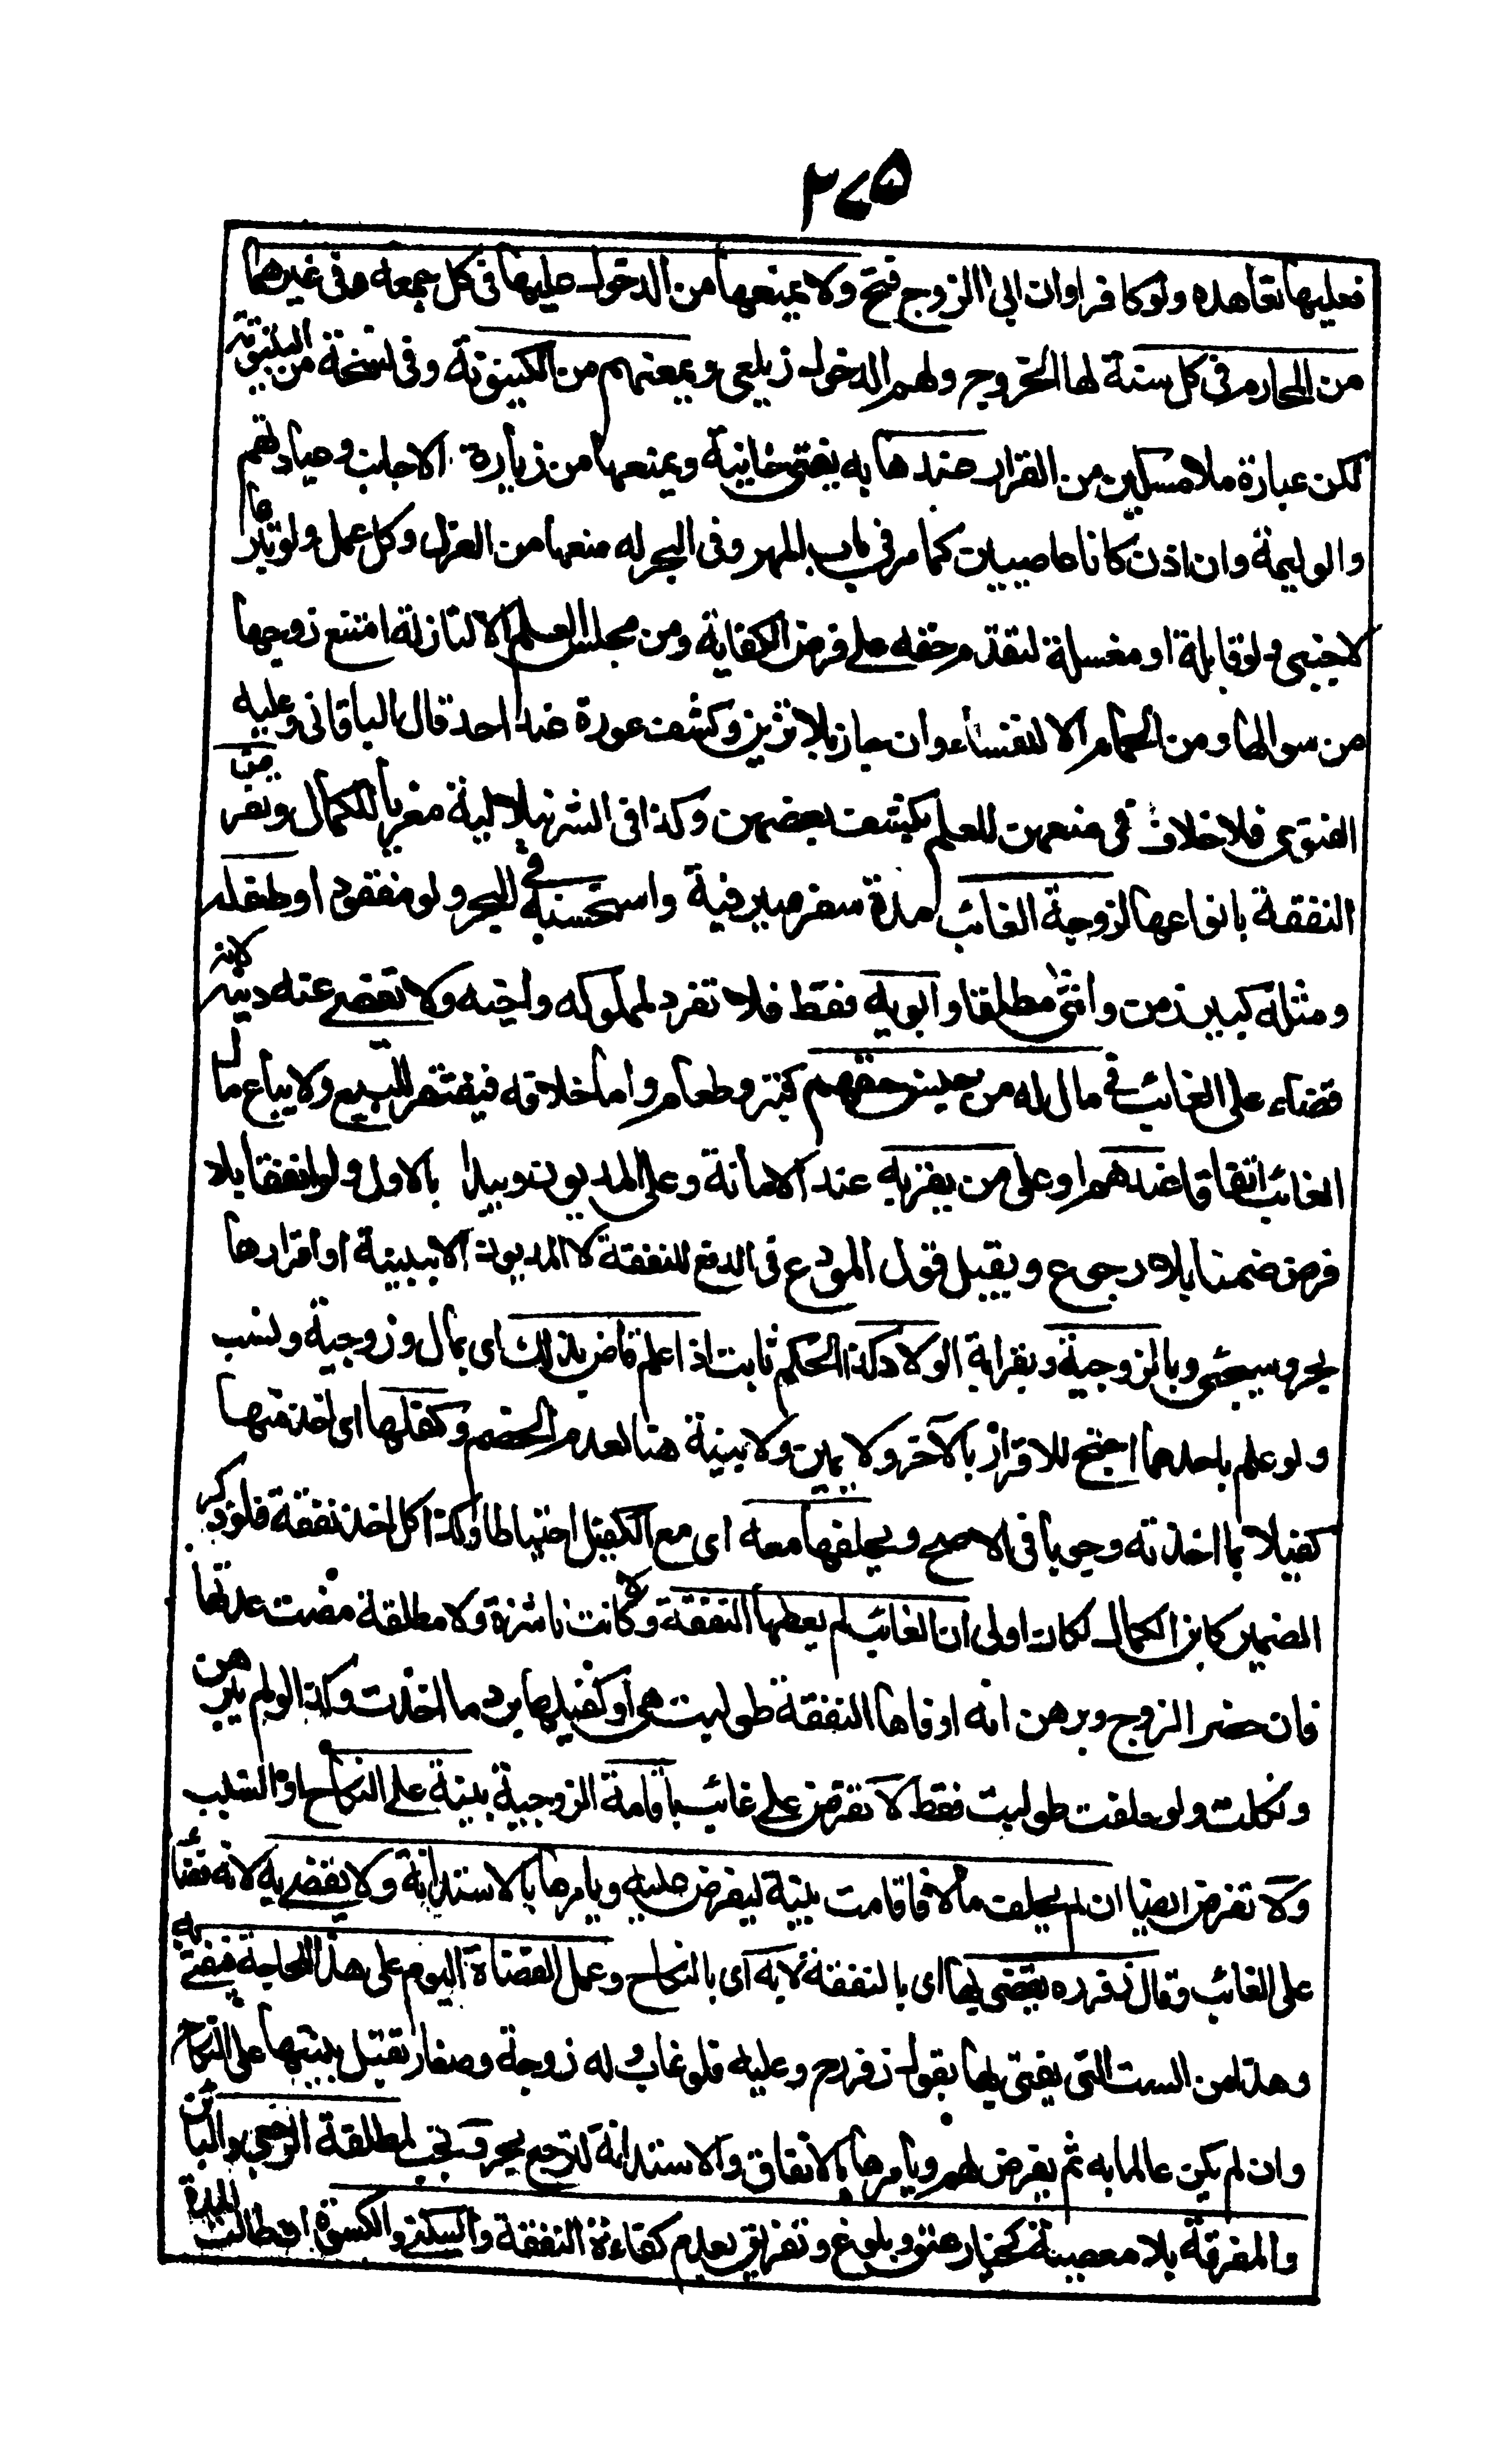 ٢٧٥
فعليها تعاهده ولو كافرا وان ابى الزوج فتح ولا يمنعهما من الدخول عليها في كل جمعه وفى غيرهما
من المحارم في كل سنة لها الخروج ولهم الدخول زيلعى ويمنعهم من الكينونة وفى نسخة من البيتوتة
لكن عبارة ملا مسكين من القرار عندها به يفتى خانية ويمنعها من زيارة الاجانب وعيادتهم
والوليمة وان اذن كانا عاصيين كما مر في باب المهر وفى البحر له منعها من الغزل وكل عمل ولو تبرعا
لاجنبى ولو قابلة او مغسلة لتقدم حقه على فرض الكفاية ومن مجلس العلم الا لنازلة امتنع زوجها
من سوالها ومن الحمام الا لنفساء وان جاز بلا تزين وكشف عورة عند احد قال الباقانى وعليه
الفتوى فلا خلاف في منعهن للعلم بكشف بعضهن وكذا فى الشرنبلالية معزيا للكمال وتفرض
النفقة بانواعها لزوجة الغائب مدة سفر صيرفية واستحسنه في البحر ولو مفقود او طفله
ومثله كبير زمن وانثى مطلقا وابويه فقط فلا تفرد لمملوكه واخيه ولا تقضى عنه دينه لانه
قضاء على الغائب في مال له من جنس حقهم كتبر وطعام واما خلافه فيفتقر للبيع ولا يباع مال
الغائب اتفاقا عندهم او على من يقر به عند الامانة وعلى المديون ويبدا بالاول ولو انفقا بلا
فرض ضمنا بلا رجوع ويقبل قول المودع في الدفع للنفقة لا المديون الا ببينة او اقرارها
بحر وسيجئ وبالزوجية وبقرابة الولاد وكذا الحكم ثابت اذا علم قاض بذلك اى بمال وزوجية ونسب
ولو علم باحدهما احتج للاقرار بالآخر ولا يمين ولا بينة هنا لعدم الخصم وكفلها اى اخذ منها
كفيلا بما اخذته وجوبا فى الاصح ويحلفها معه اى مع الكفيل احتياطا وكذا كل اخذ نفقة فلو ذكر
الضمير كابن الكمال لكان اولى ان الغائب لم يعطها النفقة ولا كانت ناشزة ولا مطلقة مضت عدتها
فان حضر الزوج وبرهن انه اوفاها النفقة طولبت هى او كفيلها برد ما اخذت وكذا لو لم يبرهن
ونكلت ولو حلفت طولبت فقط لا تفرض على غائب باقامة الزوجية بينة على النكاح او النسب
ولا تفرض ايضا ان لم يخلف مالا فاقامت بينة ليفرض عليه ويامرها بالاستدانة ولا يقضى به لانه قضاء
على الغائب وقال زفر ره يقضى بها اى بالنفقة لا به اى بالنكاح وعمل القضاة اليوم على هذا للحاجة فيفتى به
وهذا من الست التى يفتى بها بقول زفر رح وعليه فلو غاب وله زوجة وصغار تقبل بينتها على النكاح
وان لم يكن عالما به ثم يفرض لهم ويامرها بالانفاق والاستدانة لترجع بحر وتجب لمطلقة الرجعى والبائن
والمفرقة بلا معصية كخيار عتق وبلوغ وتفريق بعدم كفاءة النفقة والسكنى والكسوة ان طالت المدة